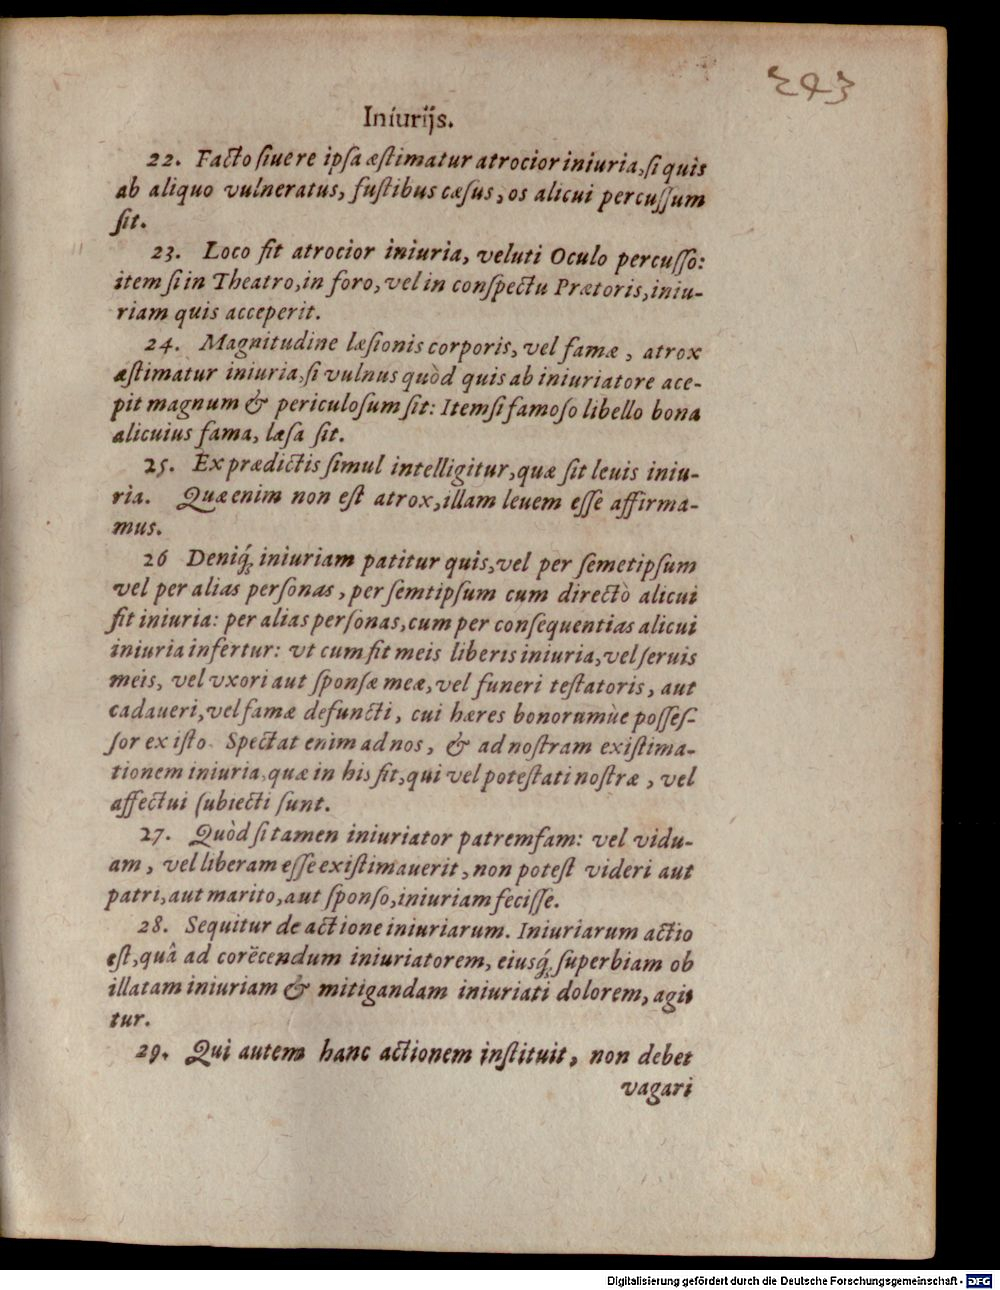 243
Iniurijs.
22. Facto siue re ipsa æstimatur atrocior iniuria, si quis
ab aliquo vulneratus, fustibus cæsus, os alicui percussum
sit.
23. Loco fit atrocior iniuria, veluti Oculo percusso:
item si in Theatro, in foro, vel in conspectu Prætoris, iniu-
riam quis acceperit.
24. Magnitudine læsionis corporis, vel famæ, atrox
æstimatur iniuria, si vulnus quòd quis ab iniuriatore ace-
pit magnum & periculosum sit: Item si famoso libello bona
alicuius fama, læsa sit.
25. Ex prædictis simul intelligitur, quæ sit leuis iniu-
ria. Quæ enim non est atrox, illam leuem esse affirma-
mus.
26 Deniq́; iniuriam patitur quis, vel per semetipsum
vel per alias personas, per semtipsum cum directò alicui
fit iniuria: per alias personas, cum per consequentias alicui
iniuria infertur: vt cum fit meis liberis iniuria, vel seruis
meis, vel vxori aut sponsæ meæ, vel funeri testatoris, aut
cadaueri, vel famæ defuncti, cui hæres bonorumùe posses-
sor existo. Spectat enim ad nos, & ad nostram existima-
tionem iniuria, quæ in his fit, qui vel potestati nostræ, vel
affectui subiecti sunt.
27. Quòd si tamen iniuriator patremfam: vel vidu-
am, vel liberam esse existimauerit, non potest videri aut
patri, aut marito, aut sponso, iniuriam fecisse.
28. Sequitur de actione iniuriarum. Iniuriarum actio
est, quâ ad corëcendum iniuriatorem, eiusq́; superbiam ob
illatam iniuriam & mitigandam iniuriati dolorem, agi
tur.
29. Qui autem hanc actionem instituit, non debet
vagari
Digitalisierung gefördert durch die Deutsche Forschungsgemeinschaft - DFG